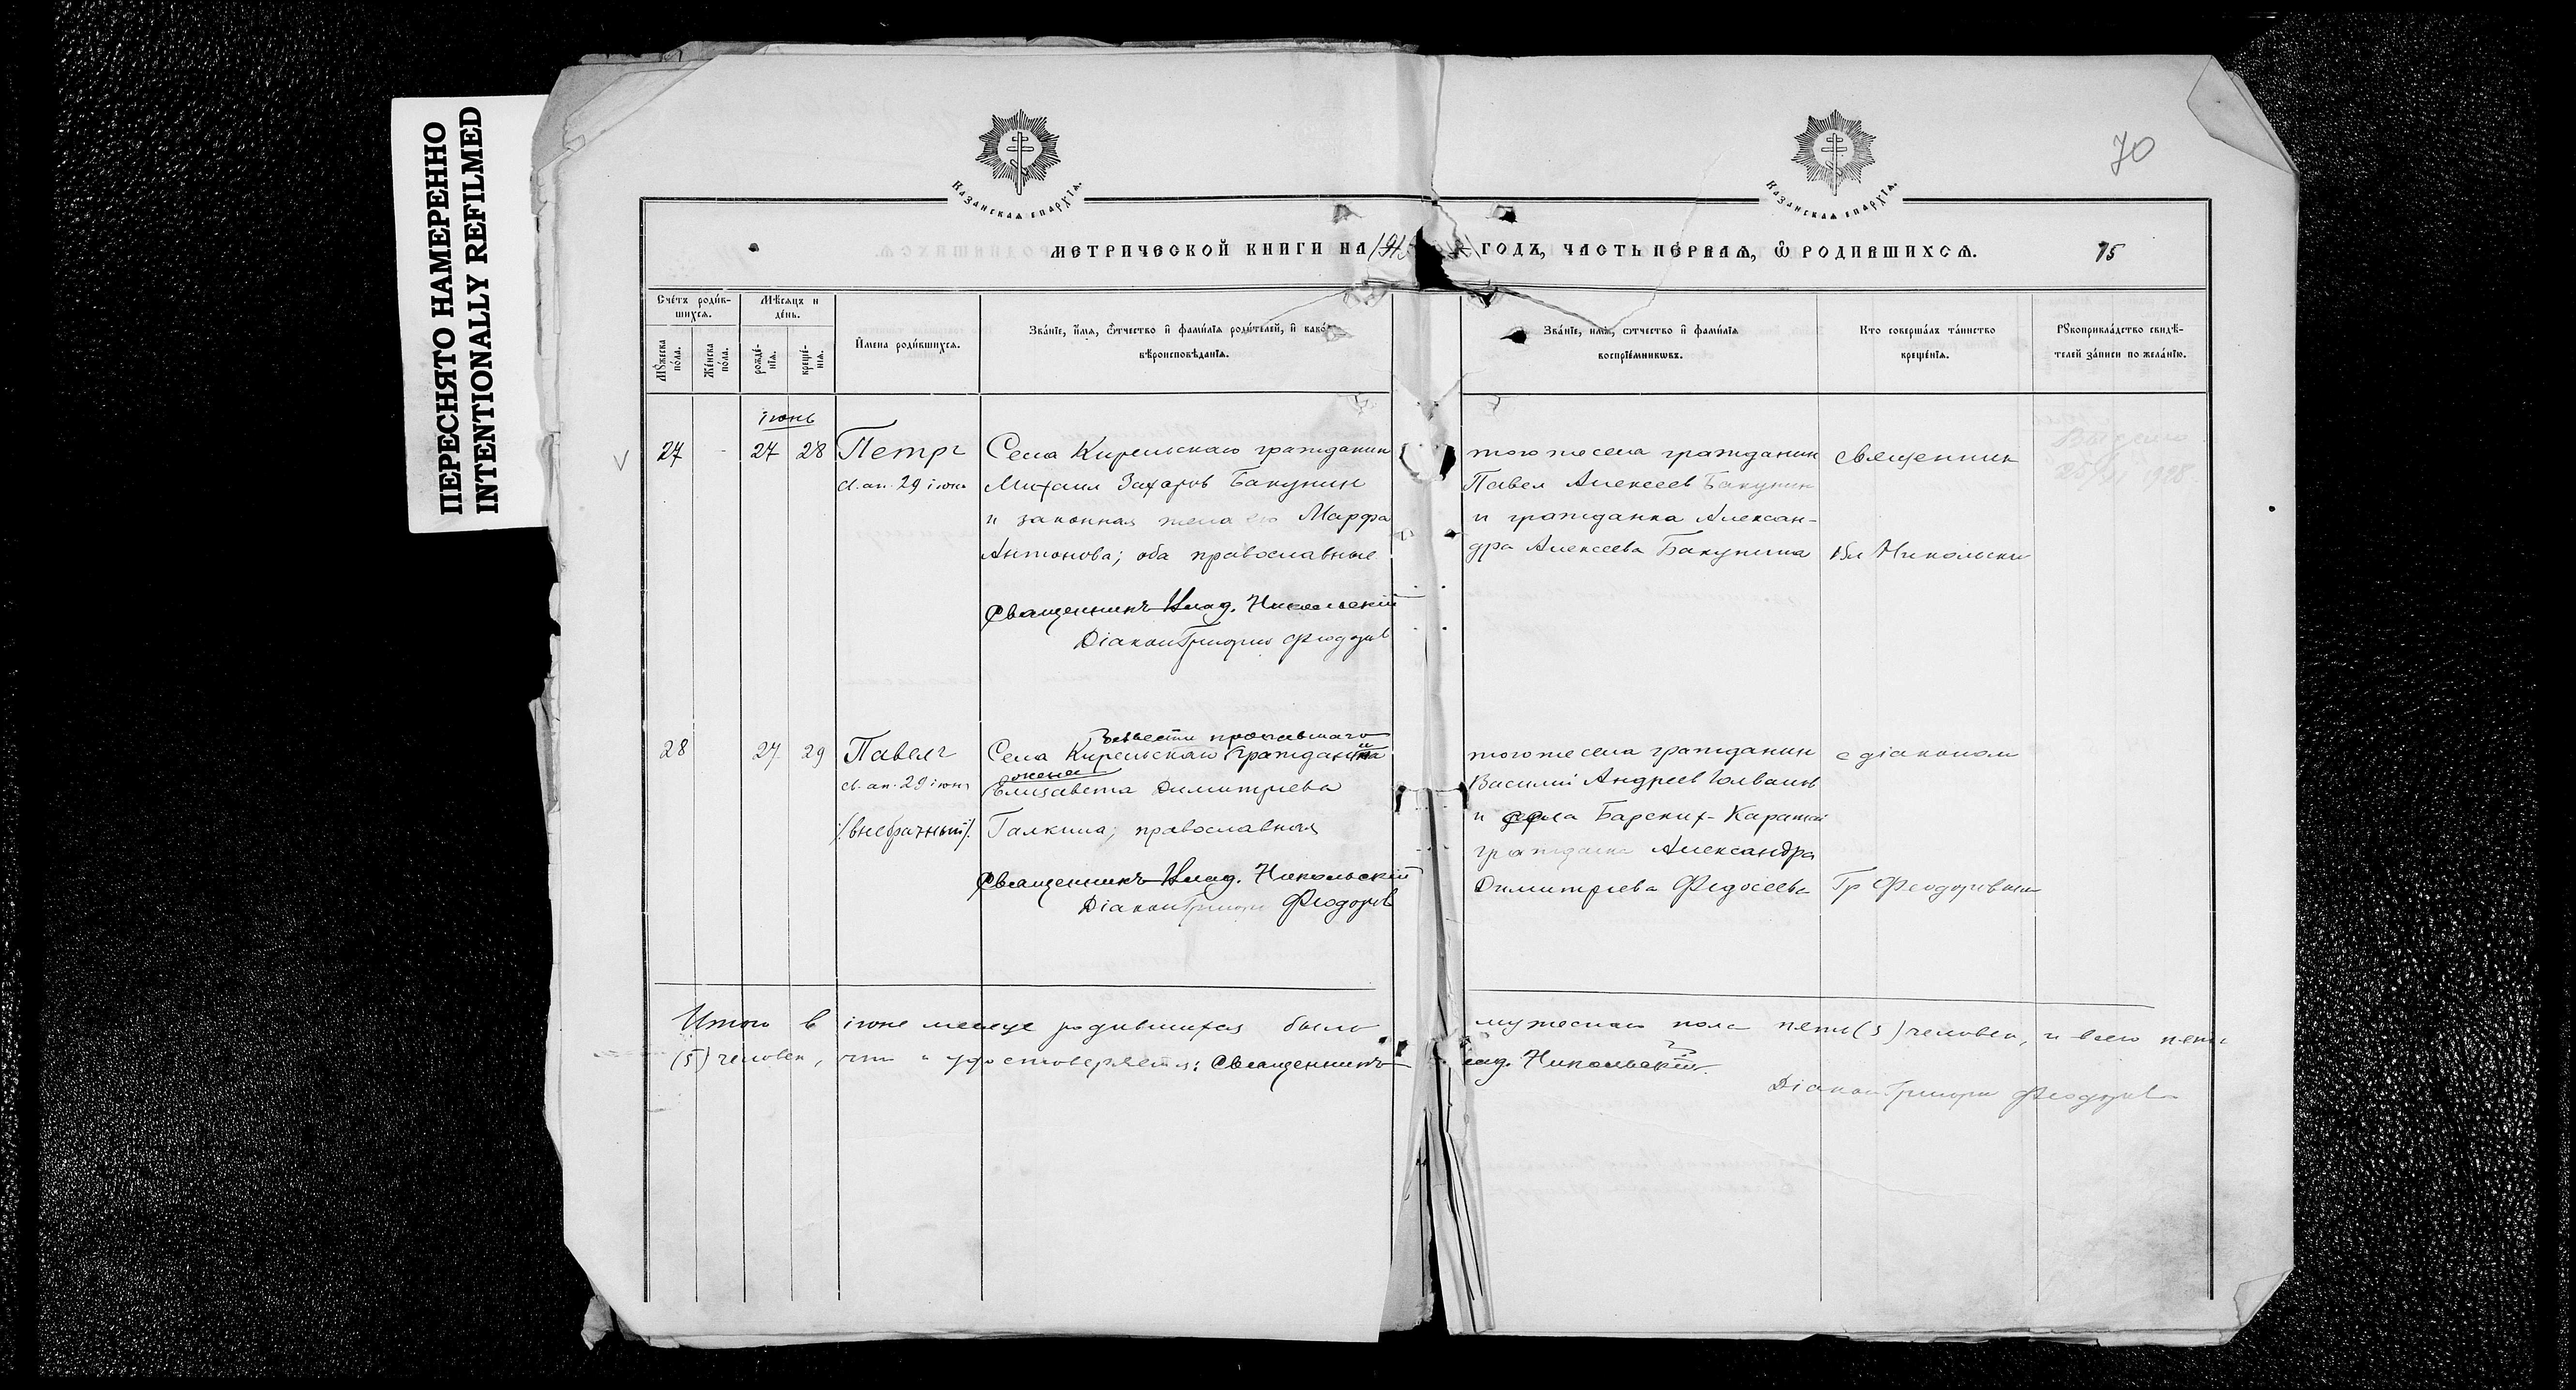 ПЕРЕСНЯТО НАМЕРЕННО
INTENTIONALLY REFILMED
70
Казанская епархїѧ.
Казанская епархїѧ.
МЕТРИЧЕСКОЙ КНИГИ НА 191 ГОДЪ, ЧАСТЬ ПЕРВАѦ, Ѽ РОДИВШИХСѦ.
15
Сче́тъ роди́в-
шихсѧ.
Мѣ́сѧцъ и
де́нь.
Мꙋ́жеска
по́ла.
Же́нска
по́ла.
рожде́-
нїѧ.
креще́-
нїѧ.
И҆мена роди́вшихсѧ.
Зва́нїе, и҆́мѧ, ѻ҆́тчество и҆ фами́лїѧ роди́телей, и҆ како́
вѣроисповѣ́данїѧ.
Зва́нїе, и҆́мѧ, ѻ҆́тчество и҆ фами́лїѧ
воспрїе́мникѡвъ.
Кто соверша́лъ та́инство
креще́нїѧ.
Рꙋкоприкла́дство свидѣ́-
телей за́писи по жела́нїю.
іюнь
27 - 27 28 Петръ
св. ап. 29 іюня
Села Кирельскаго гражданин
Михаил Захаров Бакунин
и законная жена его Марфа
Антонова; оба православные
Священникъ Влад. Никольскій
Діакон Григорий Феодоров
того же села гражданин
Павел Алексеев Бакунин
и гражданка Алексан-
дра Алексеева Бакунина
священник
Вл Никольски
1928
28 27 29 Павелъ
св. ап. 29 іюня
/внебрачный/.
безвести пропавшаго
Села Кирельскаго гражданина
жена
Елисавета Димитриева
Галкина; православная
Священникъ Влад. Никольскій
Діакон Григори Феодоров
того же села гражданин
Василий Андреев
и села Барских-Каратай
гражданка Александра
Димитриева Федосеева
с діаконом
Гр Феодоровым
Итого в іюне месяце родившихся было мужескаго пола пять (5) человек, и всего пять
(5) человек, что и удостоверяется: Священникъ Влад. Никольскій.
Діакон Григори Феодоров